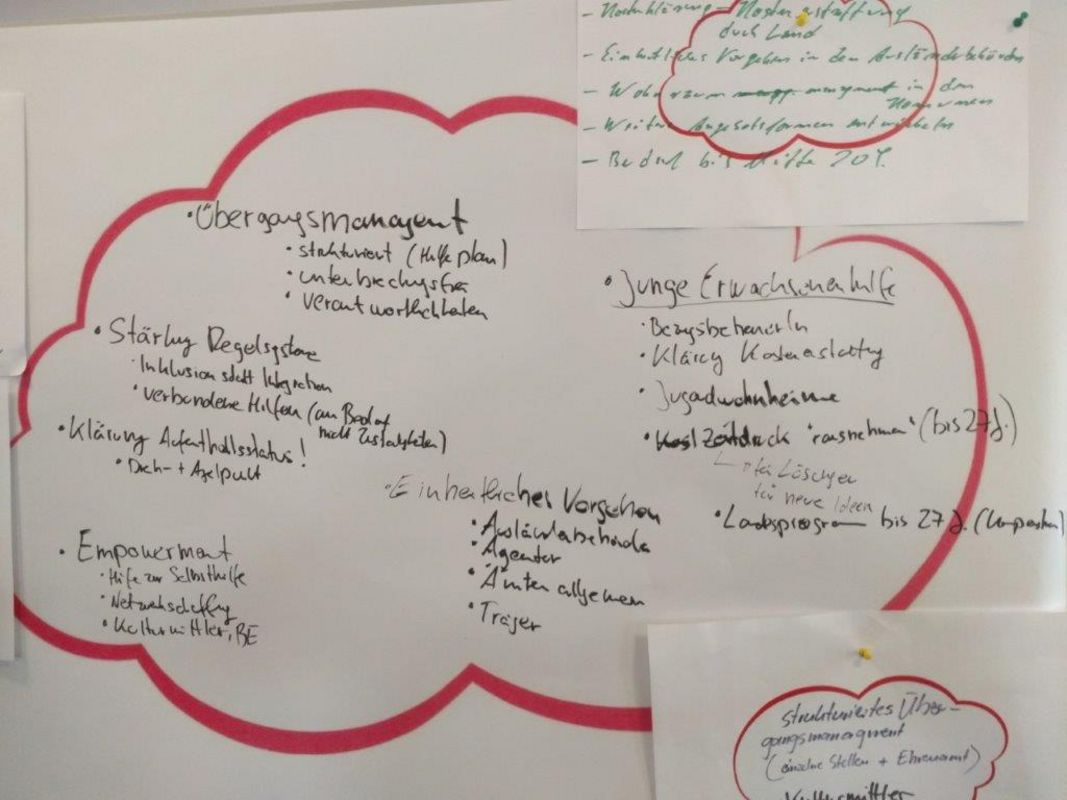 durch Land
- Einheitliches Vorgehen in den Ausländerbehörden
- Wohnraum management in den
Kommunen
- Weitere Angebotsformen entwickeln
- Bedarf bis Mitte 20 J.
• Übergangsmanagent
• strukturiert (Hilfeplan)
• unterbrechungsfrei
• Verantwortlichkeiten
• Stärkung Regelsysteme
• Inklusion statt Integration
• verbundene Hilfen (am Bedarf
nicht Zuständigkeiten)
• Klärung Aufenthaltsstatus!
• Dach- + Asylpunkt
• Empowerment
• Hilfe zur Selbsthilfe
• Netzwerkschaffung
• Kulturmittler, BE
• Einheitliches Vorgehen
• Ausländerbehörde
• Agentur
• Ämter allgemein
• Träger
• Junge Erwachsenenhilfe
• BezugsbetreuerIn
• Klärung Kostenerstattung
• Jugendwohnheime
• Zeitdruck "rausnehmen" (bis 27 J.)
für neue Ideen
• Landesprogramm bis 27 J.
strukturiertes Über-
gangsmanagment
(einzelne Stellen + Ehrenamt)
Kulturmittler